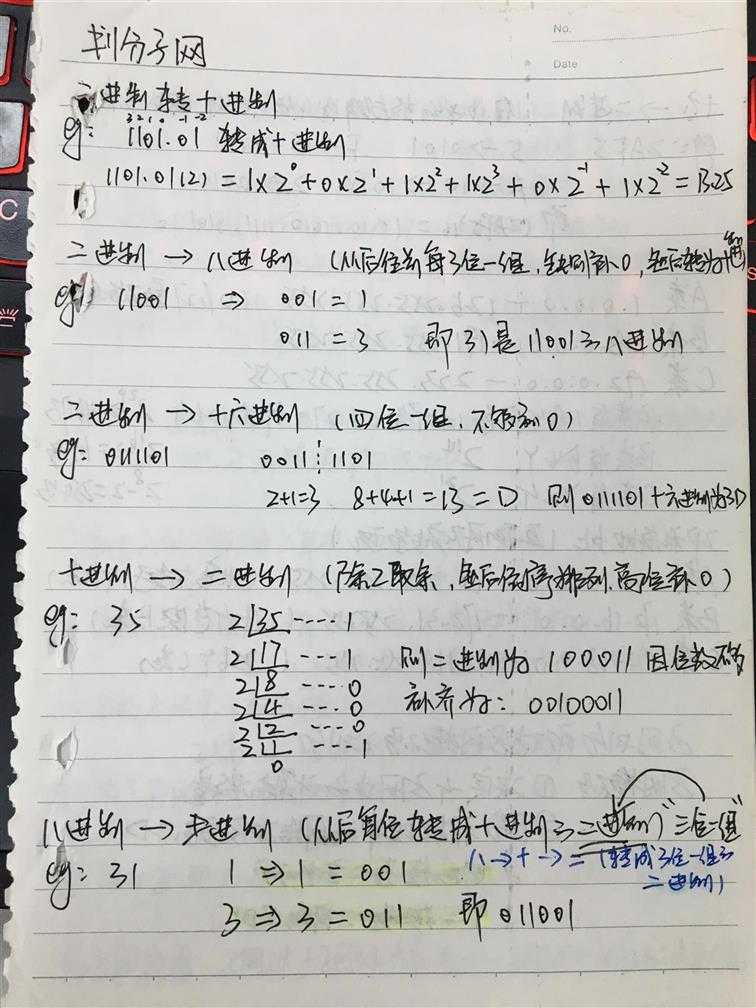 划分子网
No.
Date
二进制转十进制
3 2 1 0 -1 -2
eg: 1101.01 转成十进制
1101.01(2) = 1×2⁰+0×2¹+1×2²+1×2³+0×2⁻¹+1×2⁻²=13.25
二进制 → 八进制 (从后往前每3位一组,缺时补0,然后转为十进制)
eg: 11001 ⇒ 001 = 1
011 = 3 即31是11001的八进制
二进制 → 十六进制 (四位一组,不够补0)
eg: 011101 0011 1101
2+1=3 8+4+1=13=D 则011101十六进制为3D
十进制 → 二进制 (除二取余,然后倒序排列,高位补0)
eg: 35 2|35 ---- 1
2|17 ---- 1 则二进制为 100011 因位数不够
2|8 ---- 0 补齐为: 00100011
2|4 ---- 0
2|2 ---- 0
2|1 ---- 1
0
八进制 → 二进制 (从后每位转成十进制→二进制)"三位一组"
eg: 31 1 ⇒ 1 = 001 八→十→二(转成3位一组的
二进制)
3 ⇒ 3 = 011 即 011001
C